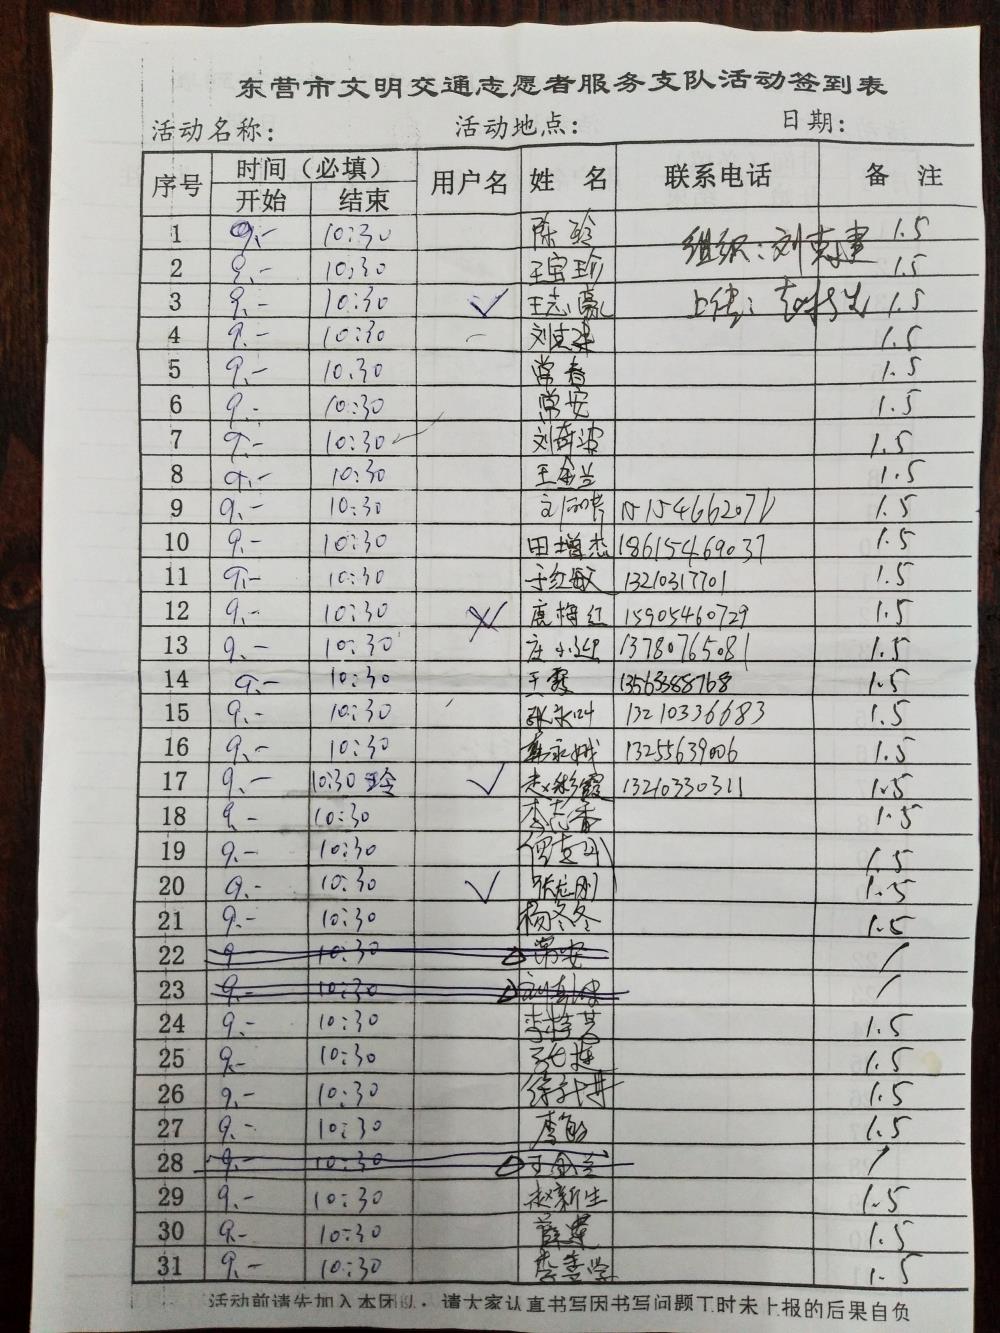 东营市文明交通志愿者服务支队活动签到表
活动名称: 活动地点: 日期:
序号 时间（必填） 用户名 姓 名 联系电话 备 注
开始 结束
1 9.- 10:30 陈玲 组织:刘克建 1.5
2 9.- 10:30 王宝珍 1.5
3 9.- 10:30 ✓ 王志亮 上传: 1.5
4 9.- 10:30 刘克建 1.5
5 9.- 10:30 常春 1.5
6 9.- 10:30 常安 1.5
7 9.- 10:30 刘奇波 1.5
8 9.- 10:30 王金兰 1.5
9 9.- 10:30 15154662071 1.5
10 9.- 10:30 田增杰 18615469037 1.5
11 9.- 10:30 于红敏 13210317701 1.5
12 9.- 10:30 唐梅红 15905460729 1.5
13 9.- 10:30 庄小 13780765081 1.5
14 9.- 10:30 王霞 13563388768 1.5
15 9.- 10:30 张 13210336683 1.5
16 9.- 10:30 13255639006 1.5
17 9.- 10:30 玲 ✓ 赵彩霞 13210330311 1.5
18 9.- 10:30 李 香 1.5
19 9.- 10:30 1.5
20 9.- 10:30 ✓ 张志刚 1.5
21 9.- 10:30 杨冬冬 1.5
22 9 10:30 常安 /
23 9.- 10:30 刘奇波 /
24 9.- 10:30 李 1.5
25 9.- 10:30 1.5
26 9.- 10:30 徐 1.5
27 9.- 10:30 李 1.5
28 9.- 10:30 王金兰 /
29 9.- 10:30 赵新生 1.5
30 9.- 10:30 薛 1.5
31 9.- 10:30 李善学 1.5
活动前请先加入本团队，请大家认真书写因书写问题工时未上报的后果自负